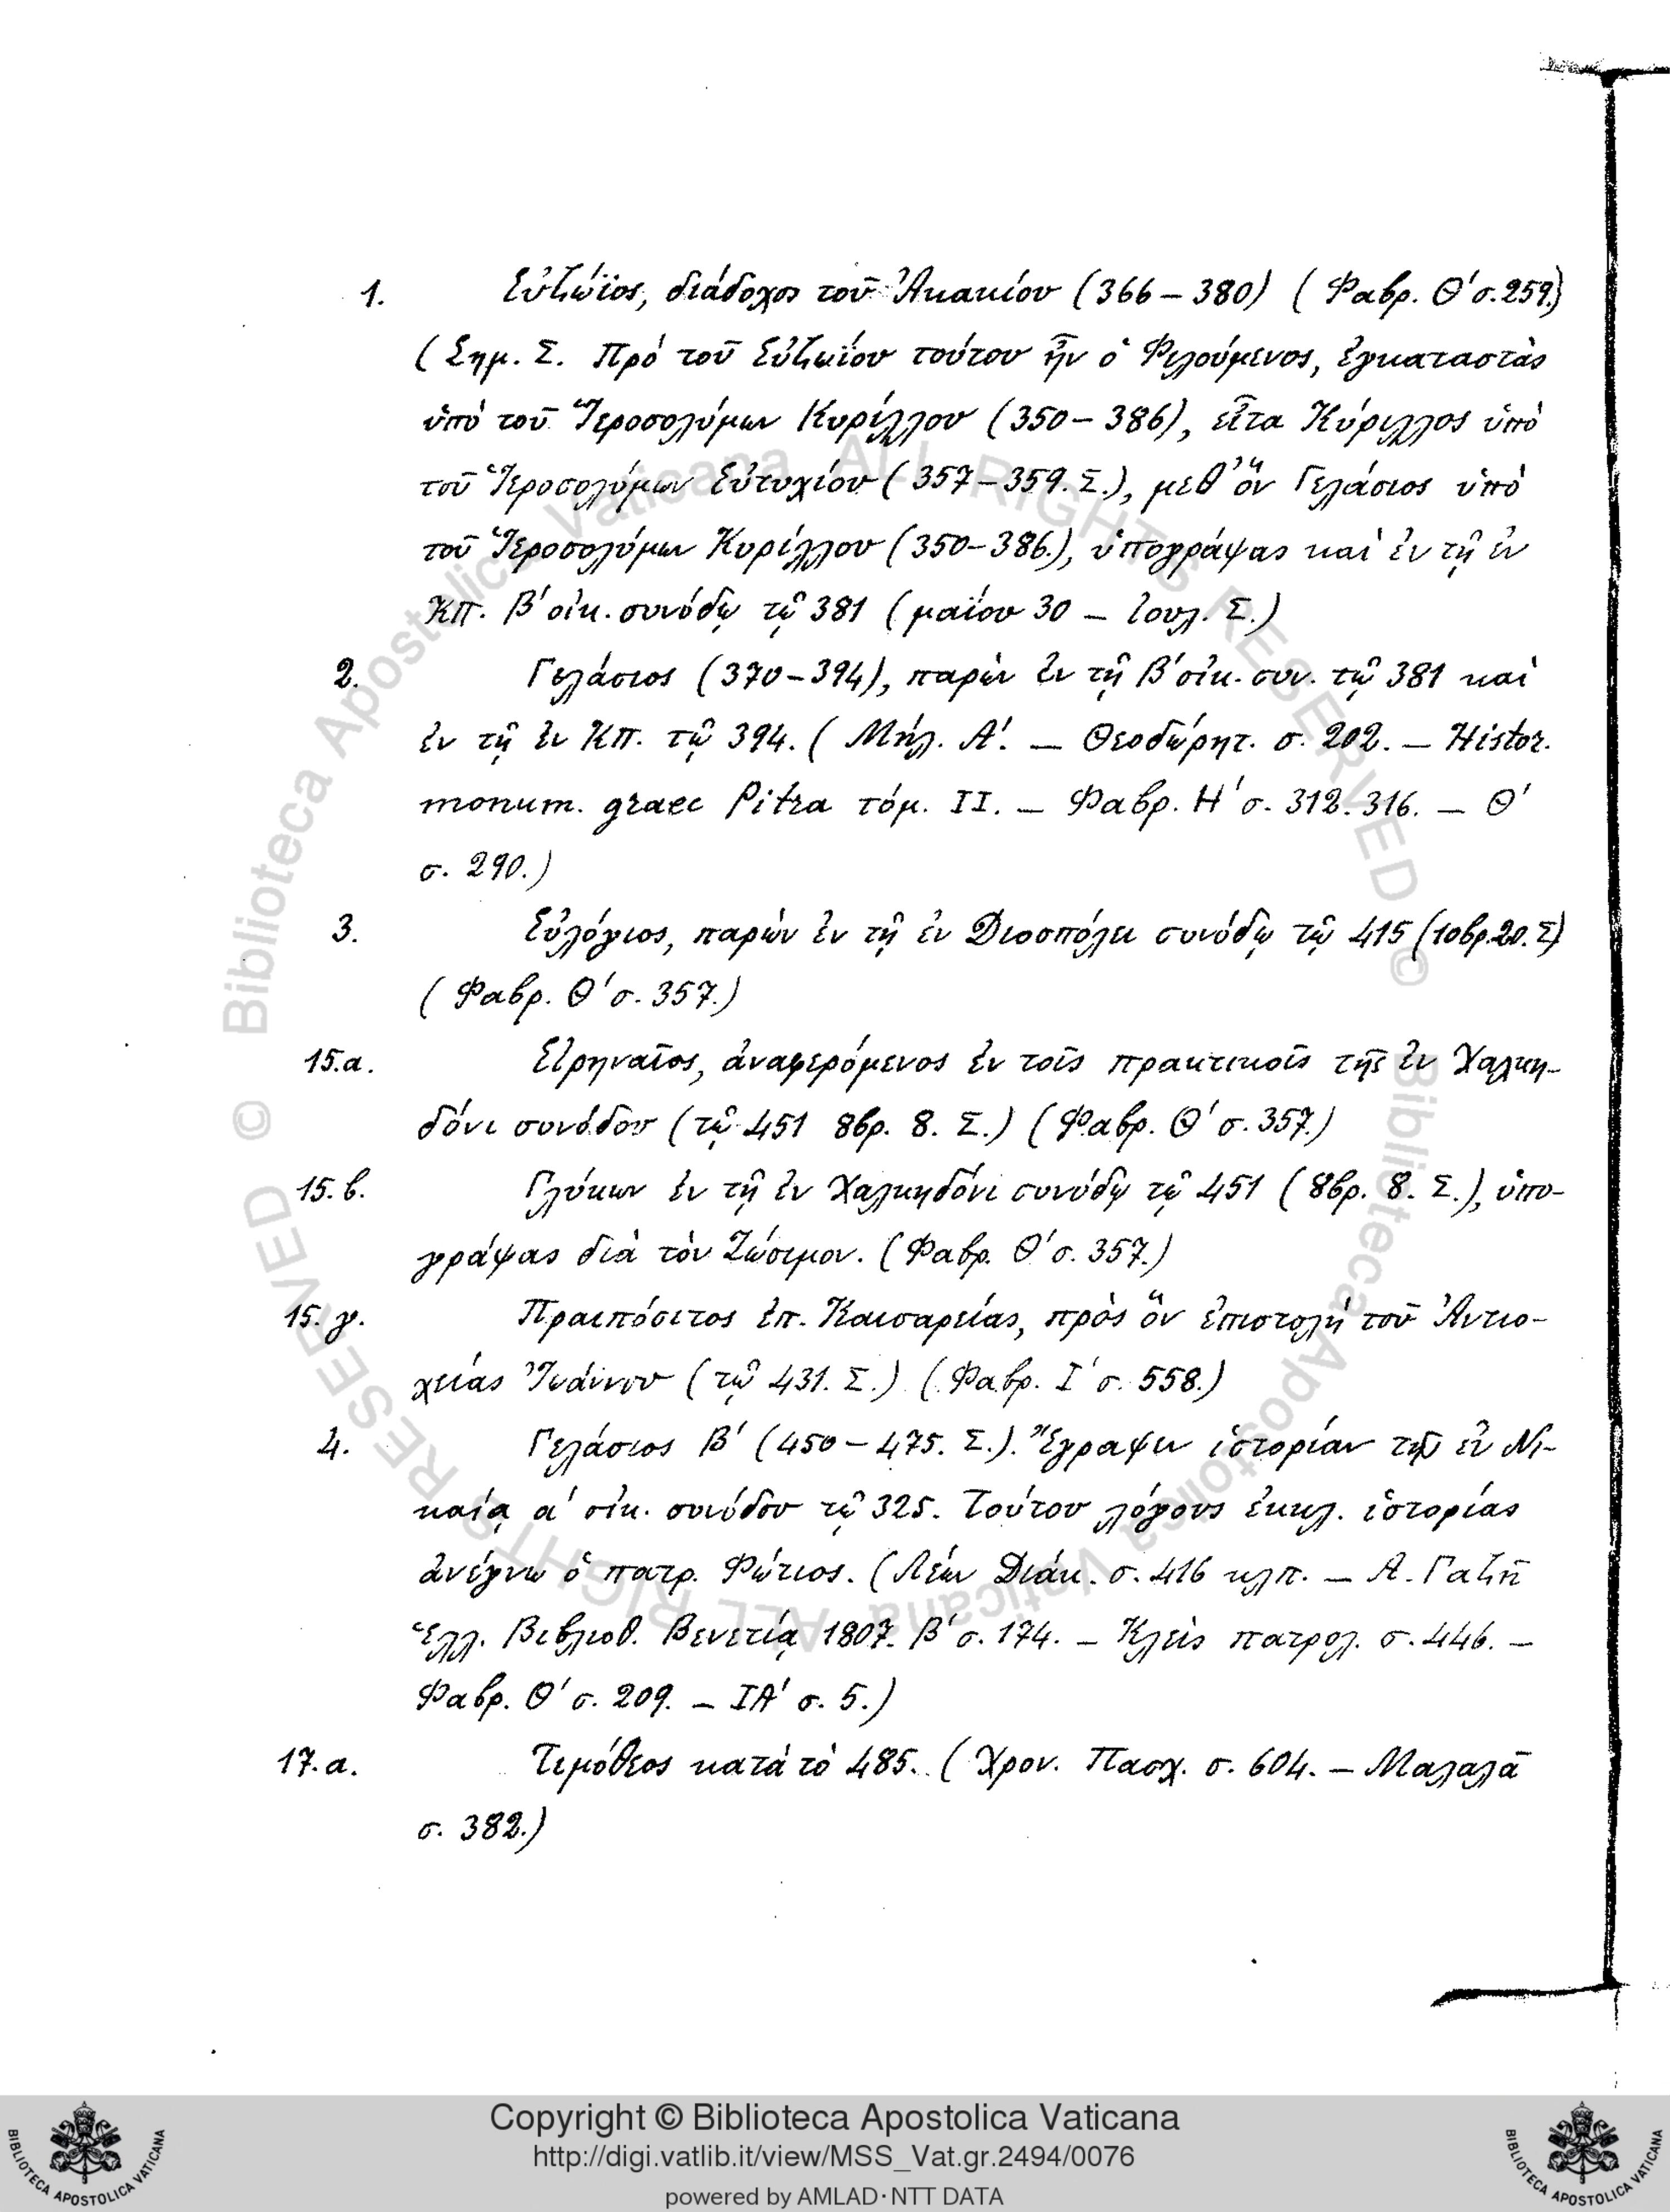 1. Εὐζώϊος, διάδοχος τοῦ Ἀκακίου (366 – 380) ( Φαβρ. Θ′ σ. 259.)
( Σημ. Σ. Πρὸ τοῦ Εὐζωΐου τούτου ἦν ὁ Φιλούμενος, ἐγκαταστὰς
ὑπὸ τοῦ Ἱεροσολύμων Κυρίλλου (350 – 386), εἶτα Κύριλλος ὑπὸ
τοῦ Ἱεροσολύμων Εὐτυχίου ( 357 – 359. Σ.), μεθ' ὃν Γελάσιος ὑπὸ
τοῦ Ἱεροσολύμων Κυρίλλου (350 – 386.), ὑπογράψας καὶ ἐν τῇ ἐν
ΚΠ. Β′ οἰκ. συνόδῳ τῷ 381 ( μαΐου 30 – ἰουλ. Σ.)
2. Γελάσιος (370 – 394), παρὼν ἐν τῇ Β′ οἰκ. συν. τῷ 381 καὶ
ἐν τῇ ἐν ΚΠ. τῷ 394. ( Μήλ. Α′. – Θεοδώρητ. σ. 202. – Histor.
monum. graec Pitra τόμ. II. – Φαβρ. Η′ σ. 312. 316. – Θ′
σ. 290.)
3. Εὐλόγιος, παρὼν ἐν τῇ ἐν Διοσπόλει συνόδῳ τῷ 415 (10βρ. 20. Σ)
( Φαβρ. Θ′ σ. 357.)
15.α. Εἰρηναῖος, ἀναφερόμενος ἐν τοῖς πρακτικοῖς τῆς ἐν Χαλκη-
δόνι συνόδου ( τῷ 451 8βρ. 8. Σ.) ( Φαβρ. Θ′ σ. 357.)
15.β. Γλύκων ἐν τῇ ἐν Χαλκηδόνι συνόδῳ τῷ 451 ( 8βρ. 8. Σ.), ὑπο-
γράψας διὰ τὸν Ζώσιμον. ( Φαβρ. Θ′ σ. 357.)
15.γ. Πραιπόσιτος ἐπ. Καισαρείας, πρὸς ὃν ἐπιστολὴ τοῦ Ἀντιο-
χείας Ἰωάννου ( τῷ 431. Σ.) ( Φαβρ. Ι′ σ. 558.)
4. Γελάσιος Β′ (450 – 475. Σ.). Ἔγραψεν ἱστορίαν τῆς ἐν Νι-
καίᾳ α′ οἰκ. συνόδου τῷ 325. Τούτου λόγους ἐκκλ. ἱστορίας
ἀνέγνω ὁ πατρ. Φώτιος. ( Λέων Διάκ. σ. 416 κλπ. – Α. Γαζῆ
Ἑλλ. Βιβλιοθ. Βενετίᾳ 1807. Β′ σ. 174. – Κλεὶς πατρολ. σ. 446. –
Φαβρ. Θ′ σ. 209. – ΙΑ′ σ. 5.)
17.α. Τιμόθεος κατὰ τὸ 485. ( Χρον. Πασχ. σ. 604. – Μαλαλᾶ
σ. 382.)
© Biblioteca Apostolica Vaticana ALL RIGHTS RESERVED
© Biblioteca Apostolica Vaticana ALL RIGHTS RESERVED
Copyright © Biblioteca Apostolica Vaticana
http://digi.vatlib.it/view/MSS_Vat.gr.2494/0076
powered by AMLAD·NTT DATA
BIBLIOTECA APOSTOLICA VATICANA
BIBLIOTECA APOSTOLICA VATICANA